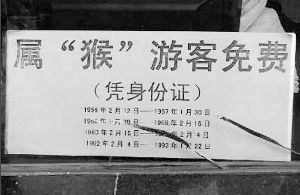 属“猴”游客免费
（凭身份证）
1956年2月12日——1957年1月30日
1968年1月30日——1969年2月16日
1980年2月16日——1981年2月4日
1992年2月4日——1993年1月22日